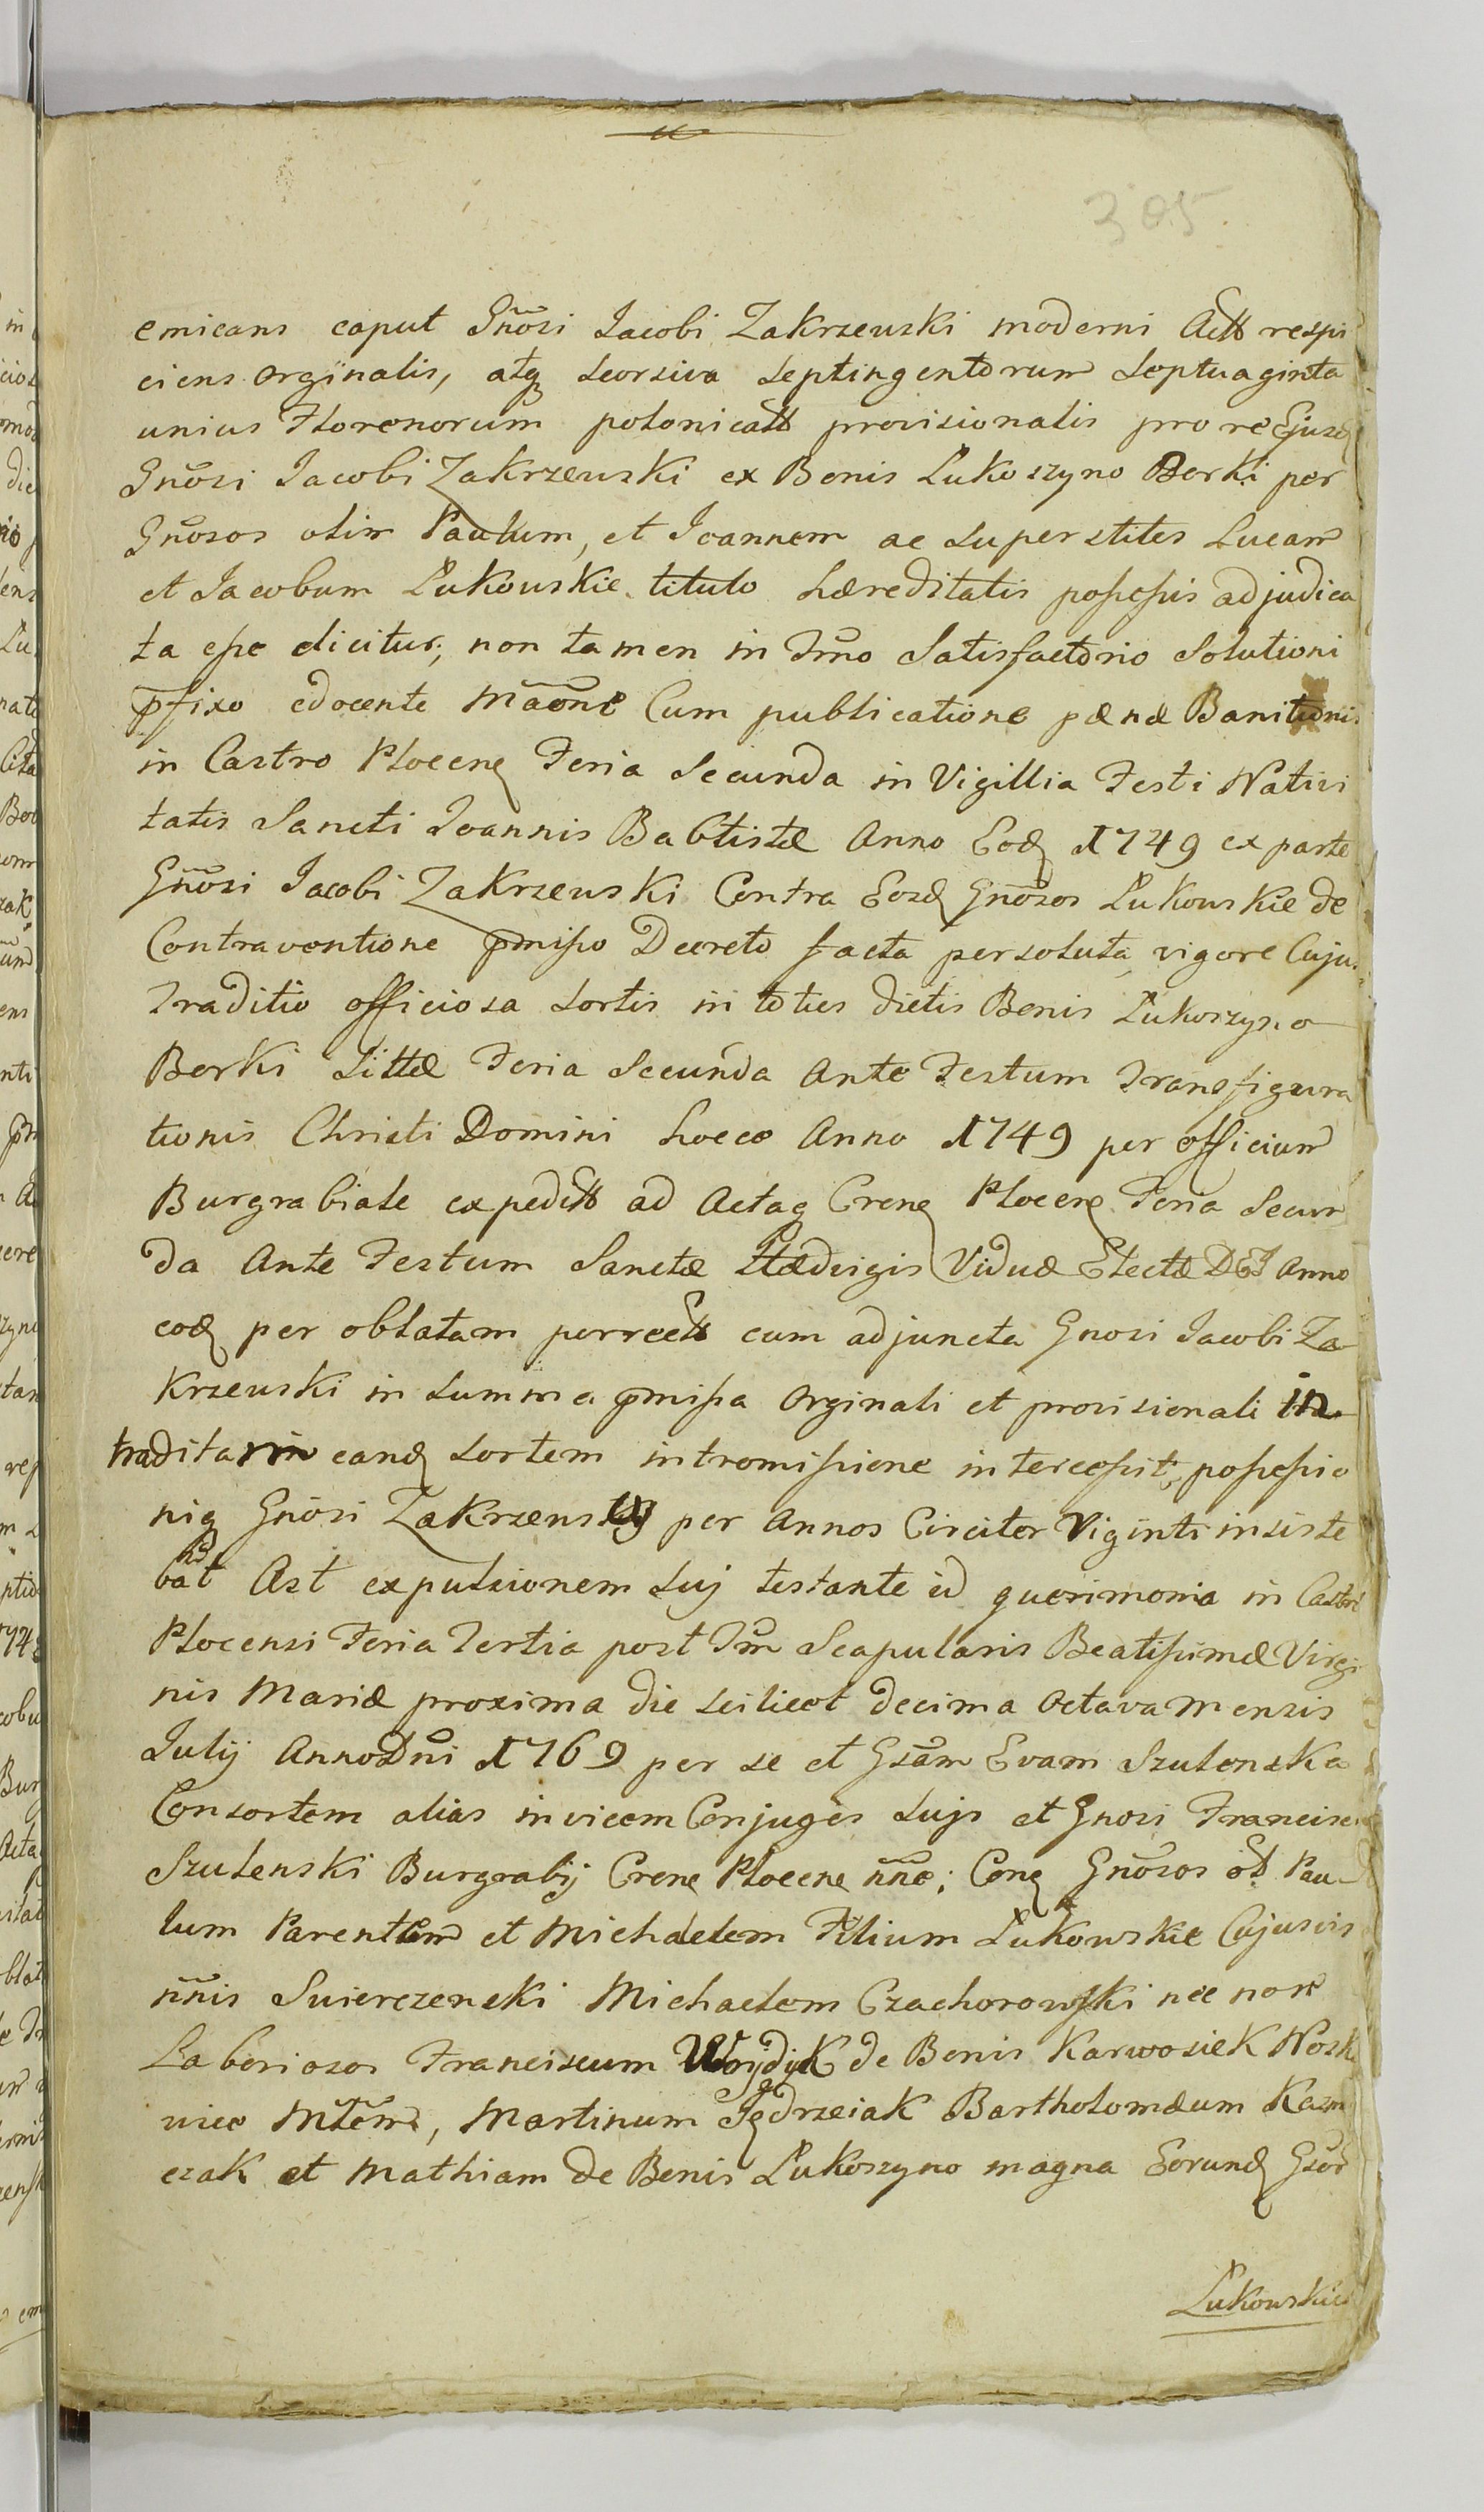 305.
emicans caput Gnosi Jacobi Zakrzewski moderni Actt respi
ciens orginalis, atq seorsiva septingentorum septuaginta
unius Florenorum polonicatt provisionalis pro re Ejusd
Gnosi Jacobi Zakrzewski ex Bonis Łukoszyno Borki per
Gnosos olim Paulum, et Joannem ac superstites Lucam
et Jacobum Łukowskie titulo hæreditatis possessis adjudica
ta esse dicitur, non tamen in Tmo Satisfactorio Solutioni
pfixo edocente Maone Cum publicatione pænæ Banitionis
in Castro Plocenq Feria Secunda in Vigillia Festi Nativi
tatis Sancti Joannis Babtistæ Anno Eod 1749 ex parte
Gnosi Jacobi Zakrzewski Contra Eosd Gnosos Łukowskie de
Contraventione pmisso Decreto facta persoluta, vigore Cuju
Traditio officiosa sortis in toties dictis Bonis Łukoszyno
Borki Sittæ Feria Secunda Ante Festum Transfigura
tionis Christi Domini hocce Anno 1749 per officium
Burgrabiale expeditt ad Actaq Crenq Plocenq Feria Secun
da Ante Festum Sanctæ Hædvigis Viduæ Electæ DEI Anno
eod per oblatam perrectt cum adjuncta Gnosi Jacobi Za
krzewski in summa pmissa Orginali et provisionali in
traditam in eand sortem intromissione intercessit, possessio
niq Gnosi Zakrzewski per Annos Circiter Viginti insiste
bat Ast expulsionem sui testante id querimonia in Castro
Plocensi Feria Tertia post Tm Scapularis Beatissimæ Virgi
nis Mariæ proxima die scilicet decima octava mensis
Julij Anno Dni 1769 per se et Gsam Evam Szulenska
Consortem alias invicem Conjuges sujs et Gnosi Francisc
Szulenski Burgrabij Crenq Plocene nne; Conq Gnosos ot Pau
lum Parentem et Michaelem Filium Łukowskie Cujusvis
nnis Swierczenski Michaelem Czachorowski nec non
Laboriosos Franciscum Woijdyk de Bonis Karwosiek Nosk
wice Mtem, Martinum Jędrzeiak Bartholomæum Kazm
czak et Mathiam de Bonis Łukoszyno magna Eorund Gsor
Łukowskie